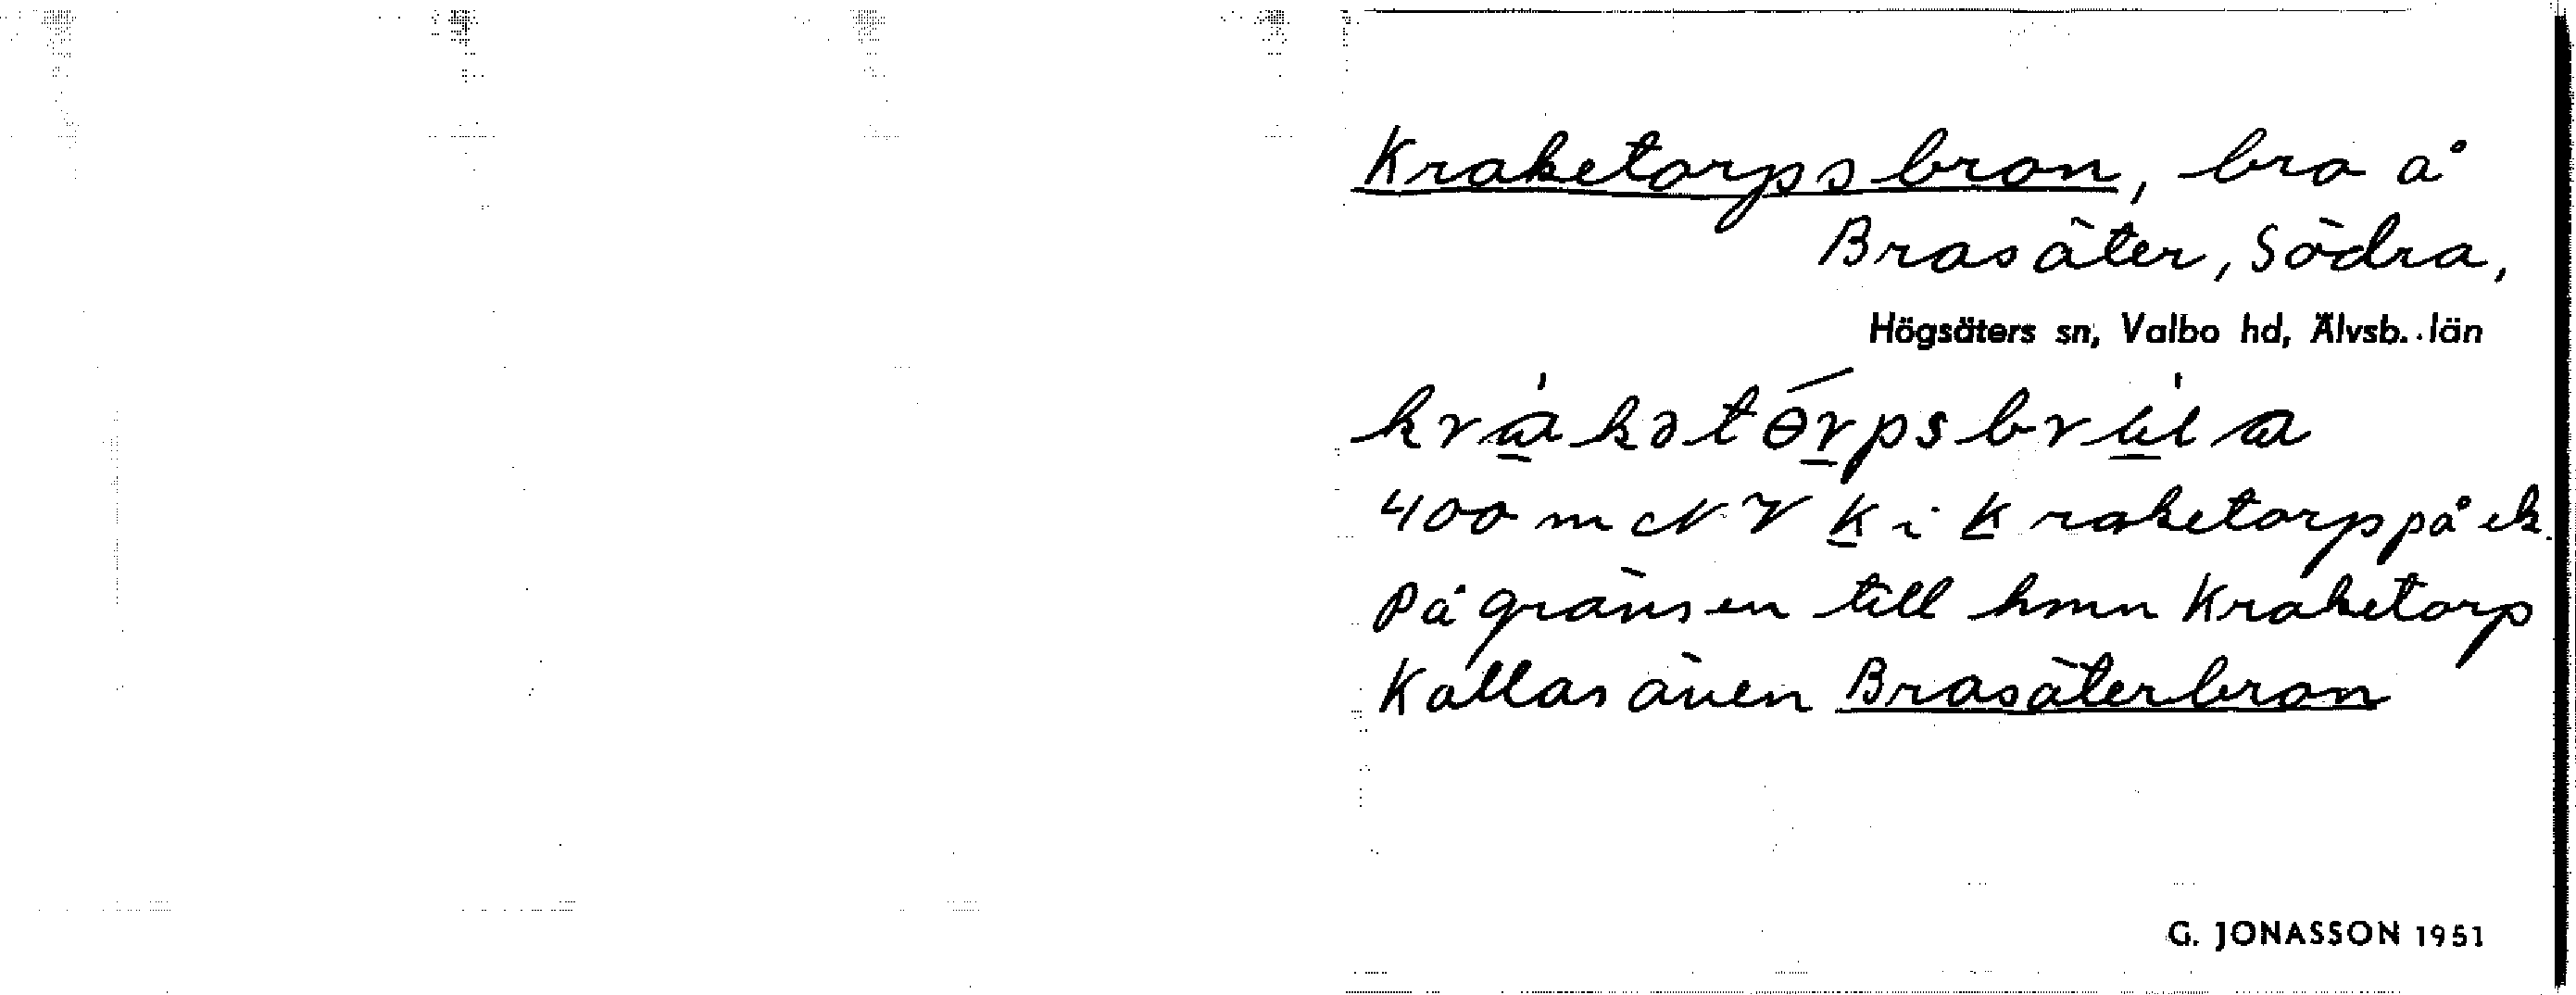 Kraketorpsbron, bro å
Brasäter, Södra,
Högsäters sn, Valbo hd, Älvsb. län
400 m NV K i Kraketorp på ek.
På gränsen till hmn Kraketorp
Kallas även Brasäterbron
G. JONASSON 1951